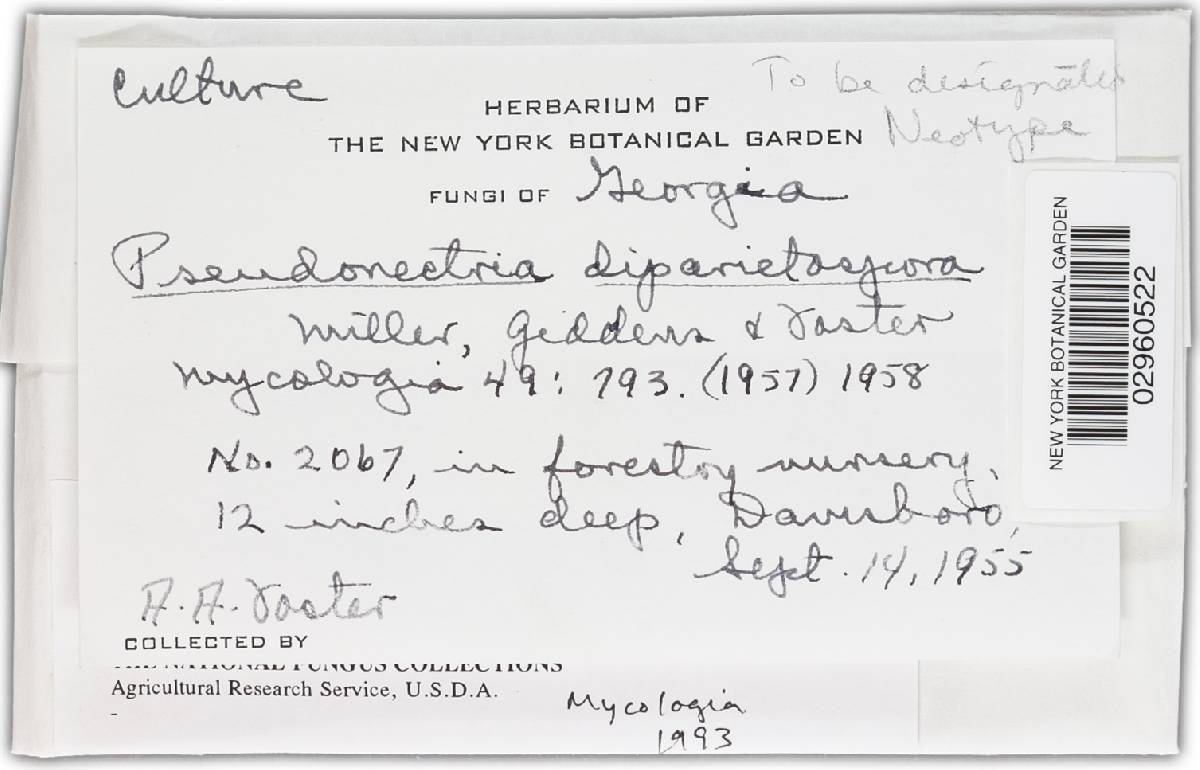 Culture
To be designated
HERBARIUM OF
THE NEW YORK BOTANICAL GARDEN
Neotype
FUNGI OF Georgia
Pseudonectria diparietospora
Miller, Giddens & Foster
Mycologia 49: 793. (1957) 1958
No. 2067, in forestry nursery,
12 inches deep, Davisboro,
Sept. 14, 1955
A. A. Foster
COLLECTED BY
THE NATIONAL FUNGUS COLLECTIONS
Agricultural Research Service, U.S.D.A.
-
Mycologia
1993
NEW YORK BOTANICAL GARDEN
02960522